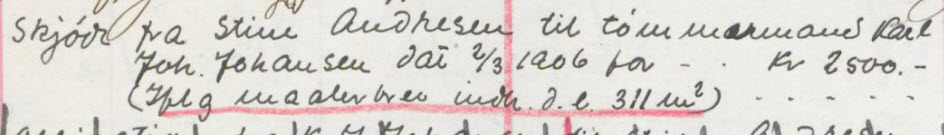 Skjöde fra Stine Andresen til tömmermand Karl
Joh. Johansen dat 2/3 1906 for - . Kr 2500.-
(Iflg maalebrev indh. d. e. 311 m²) . . . . .